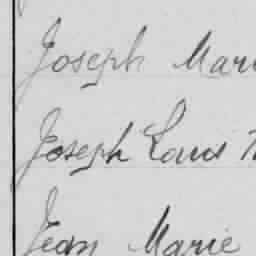 Joseph Mari
Joseph Louis
Jean Marie